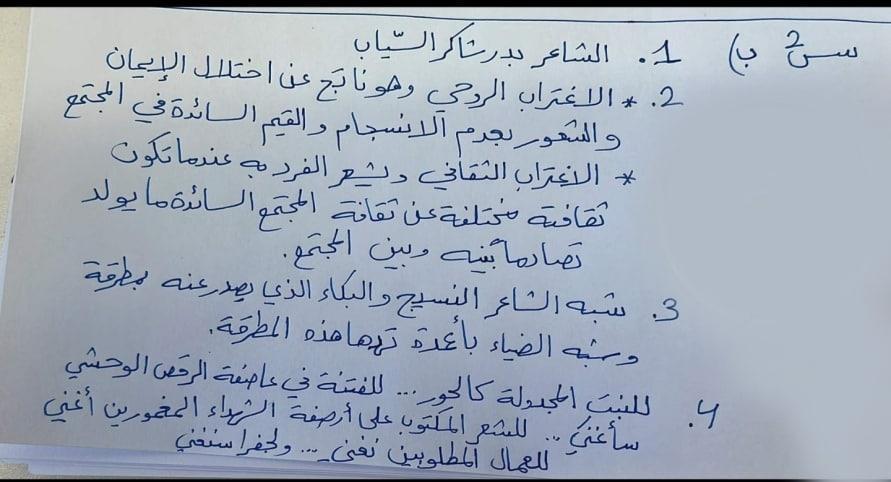 س2 ب) 1. الشاعر بدر شاكر السّياب
2. * الاغتراب الروحي وهو ناتج عن اختلال الإيمان
والشعور بعدم الانسجام والقيم السائدة في المجتمع
* الاغتراب الثقافي ويشعر الفرد به عندما تكون
ثقافته مختلفة عن ثقافة المجتمع السائدة ما يولد
تصادما بينه وبين المجتمع.
3. شبه الشاعر النسيج والبكاء الذي يصدر عنه بمطرقة
وشبه الضياء بأعمدة تهدها هذه المطرقة.
4. للبنت المجدولة كالحور ... للفتنة في عاصفة الرقص الوحشي
سأغني .. للشعر المكتوب على أرصفة الشهداء المغمورين أغني
للعمال المطلوبين نغني ... ولجفرا سنغني